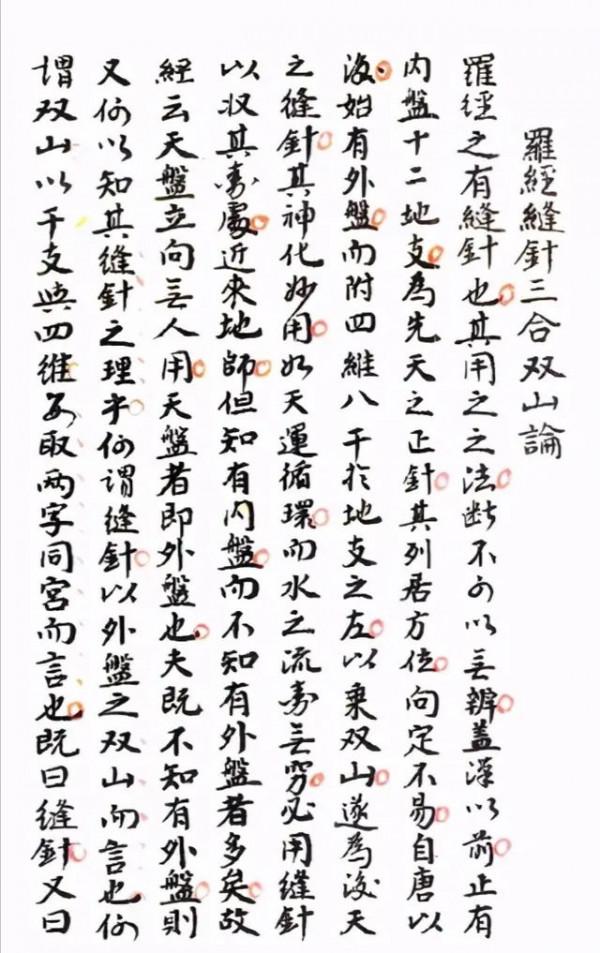 羅經縫針三合双山論
羅經之有縫針也其用之之法断不可以無辨盖漢以前止有
内盤十二地支為先天之正針其列居方位向定不易自唐以
後始有外盤而附四維八干於地支之左以乘双山遂為後天
之縫針其神化妙用如天運循環而水之流無窮必用縫針
以収其處近來地師但知有内盤而不知有外盤者多矣故
經云天盤立向無人用天盤者即外盤也夫既不知有外盤則
又何以知其縫針之理乎何謂縫針以外盤之双山而言也何
謂双山以干支與四維每取两字同宮而言也既曰縫針又曰